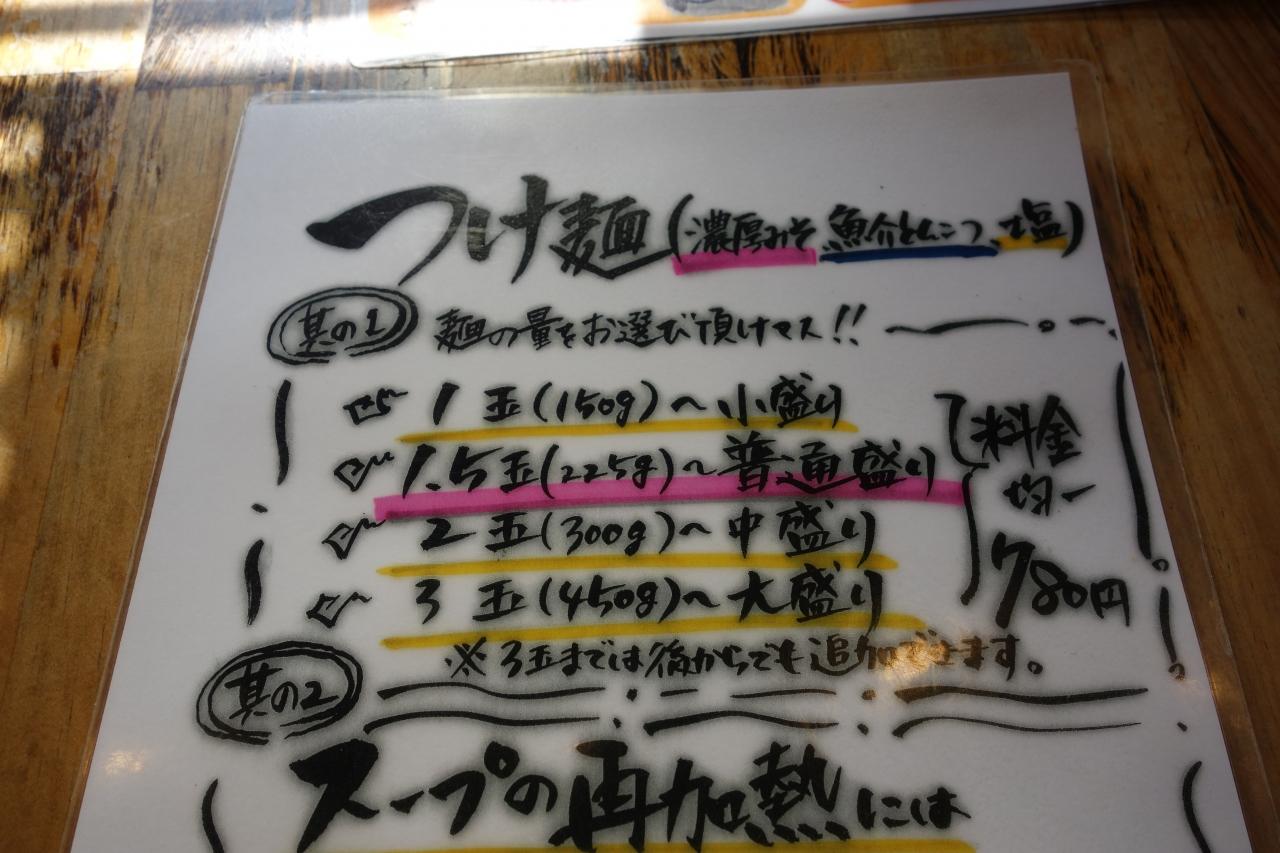 つけ麺(濃厚みそ、魚介とんこつ、塩)
其の1 麺の量をお選び頂けマス!!
1玉(150g)～小盛り
1.5玉(225g)～普通盛り
2玉(300g)～中盛り
3玉(450g)～大盛り
料金
均一
780円
※3玉までは後からでも追加できます。
其の2
スープの再加熱には